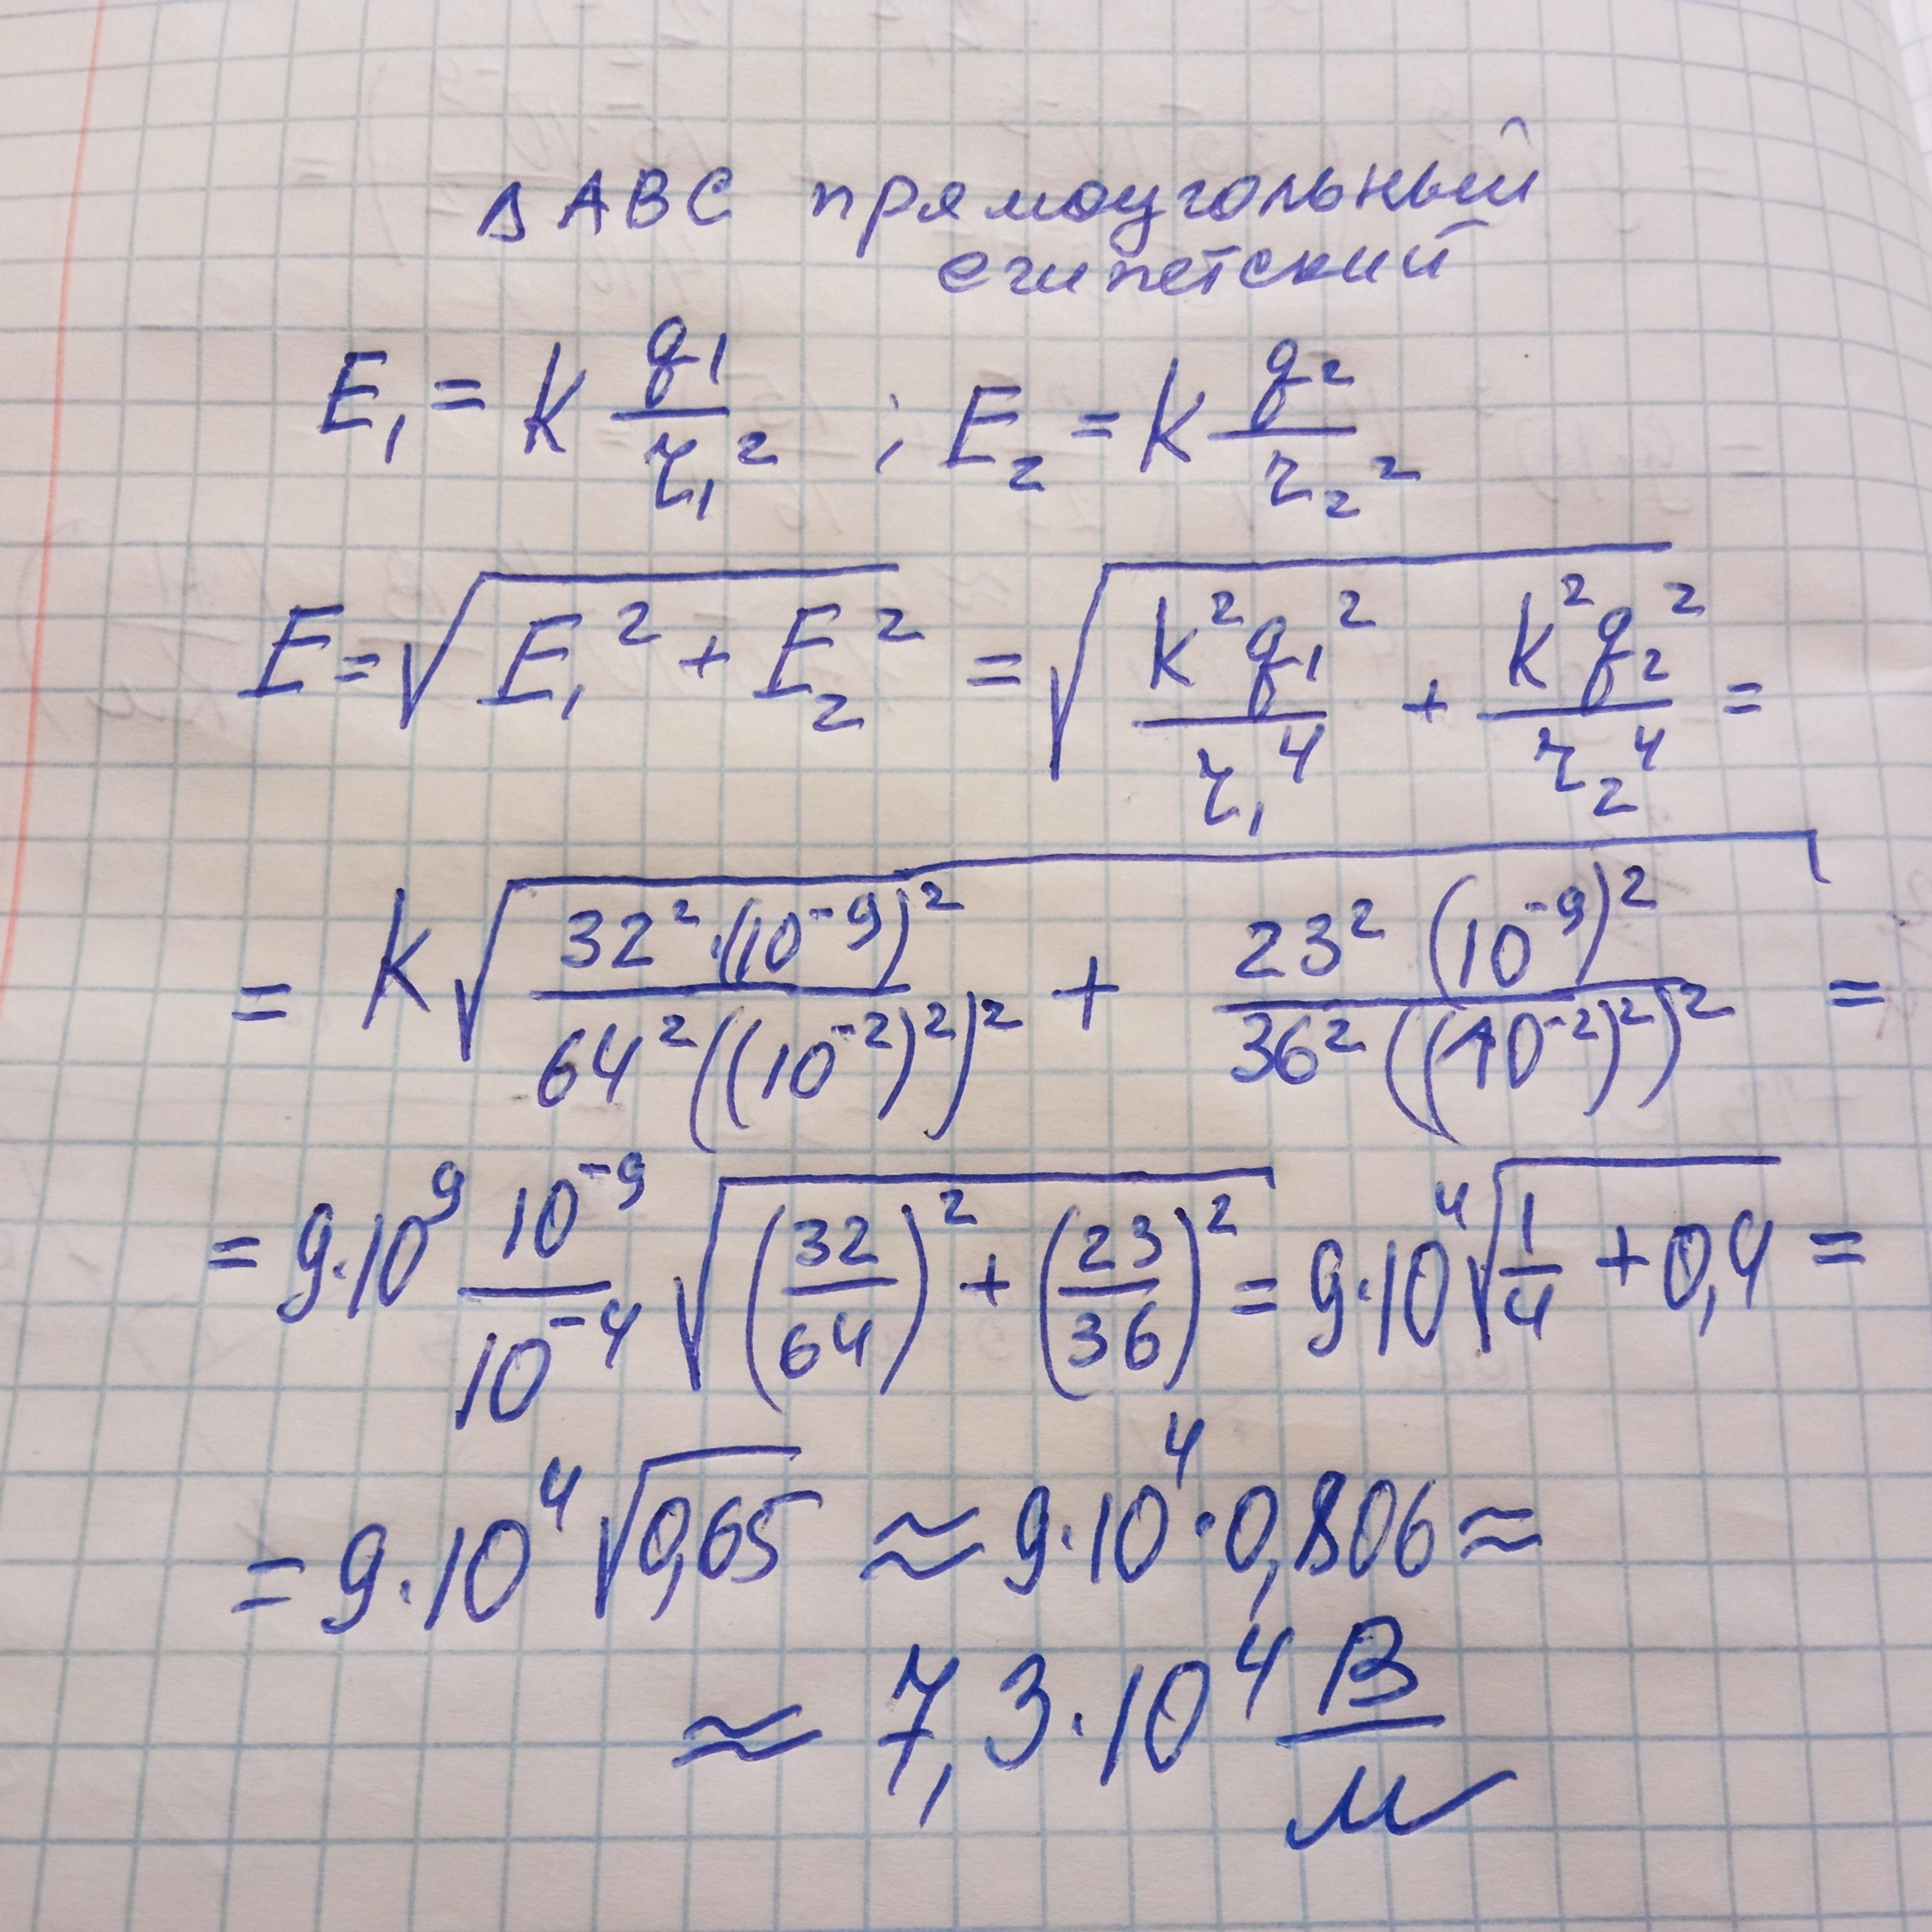 Δ ABC прямоугольный
египетский
E₁ = k q₁/r₁² ; E₂ = k q₂/r₂²
E = √(E₁² + E₂²) = √(k²q₁²/r₁⁴ + k²q₂²/r₂⁴) =
= k √(32²·(10⁻⁹)²/64²((10⁻²)²)² + 23²(10⁻⁹)²/36²((10⁻²)²)²) =
= 9·10⁹ 10⁻⁹/10⁻⁴ √((32/64)² + (23/36)²) = 9·10⁴ √(1/4 + 0,4) =
= 9·10⁴ √0,65 ≈ 9·10⁴·0,806 ≈
≈ 7,3·10⁴ В/м